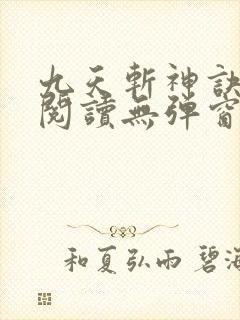 九天斬神訣
閱讀無彈窗
和夏弘雨 碧海